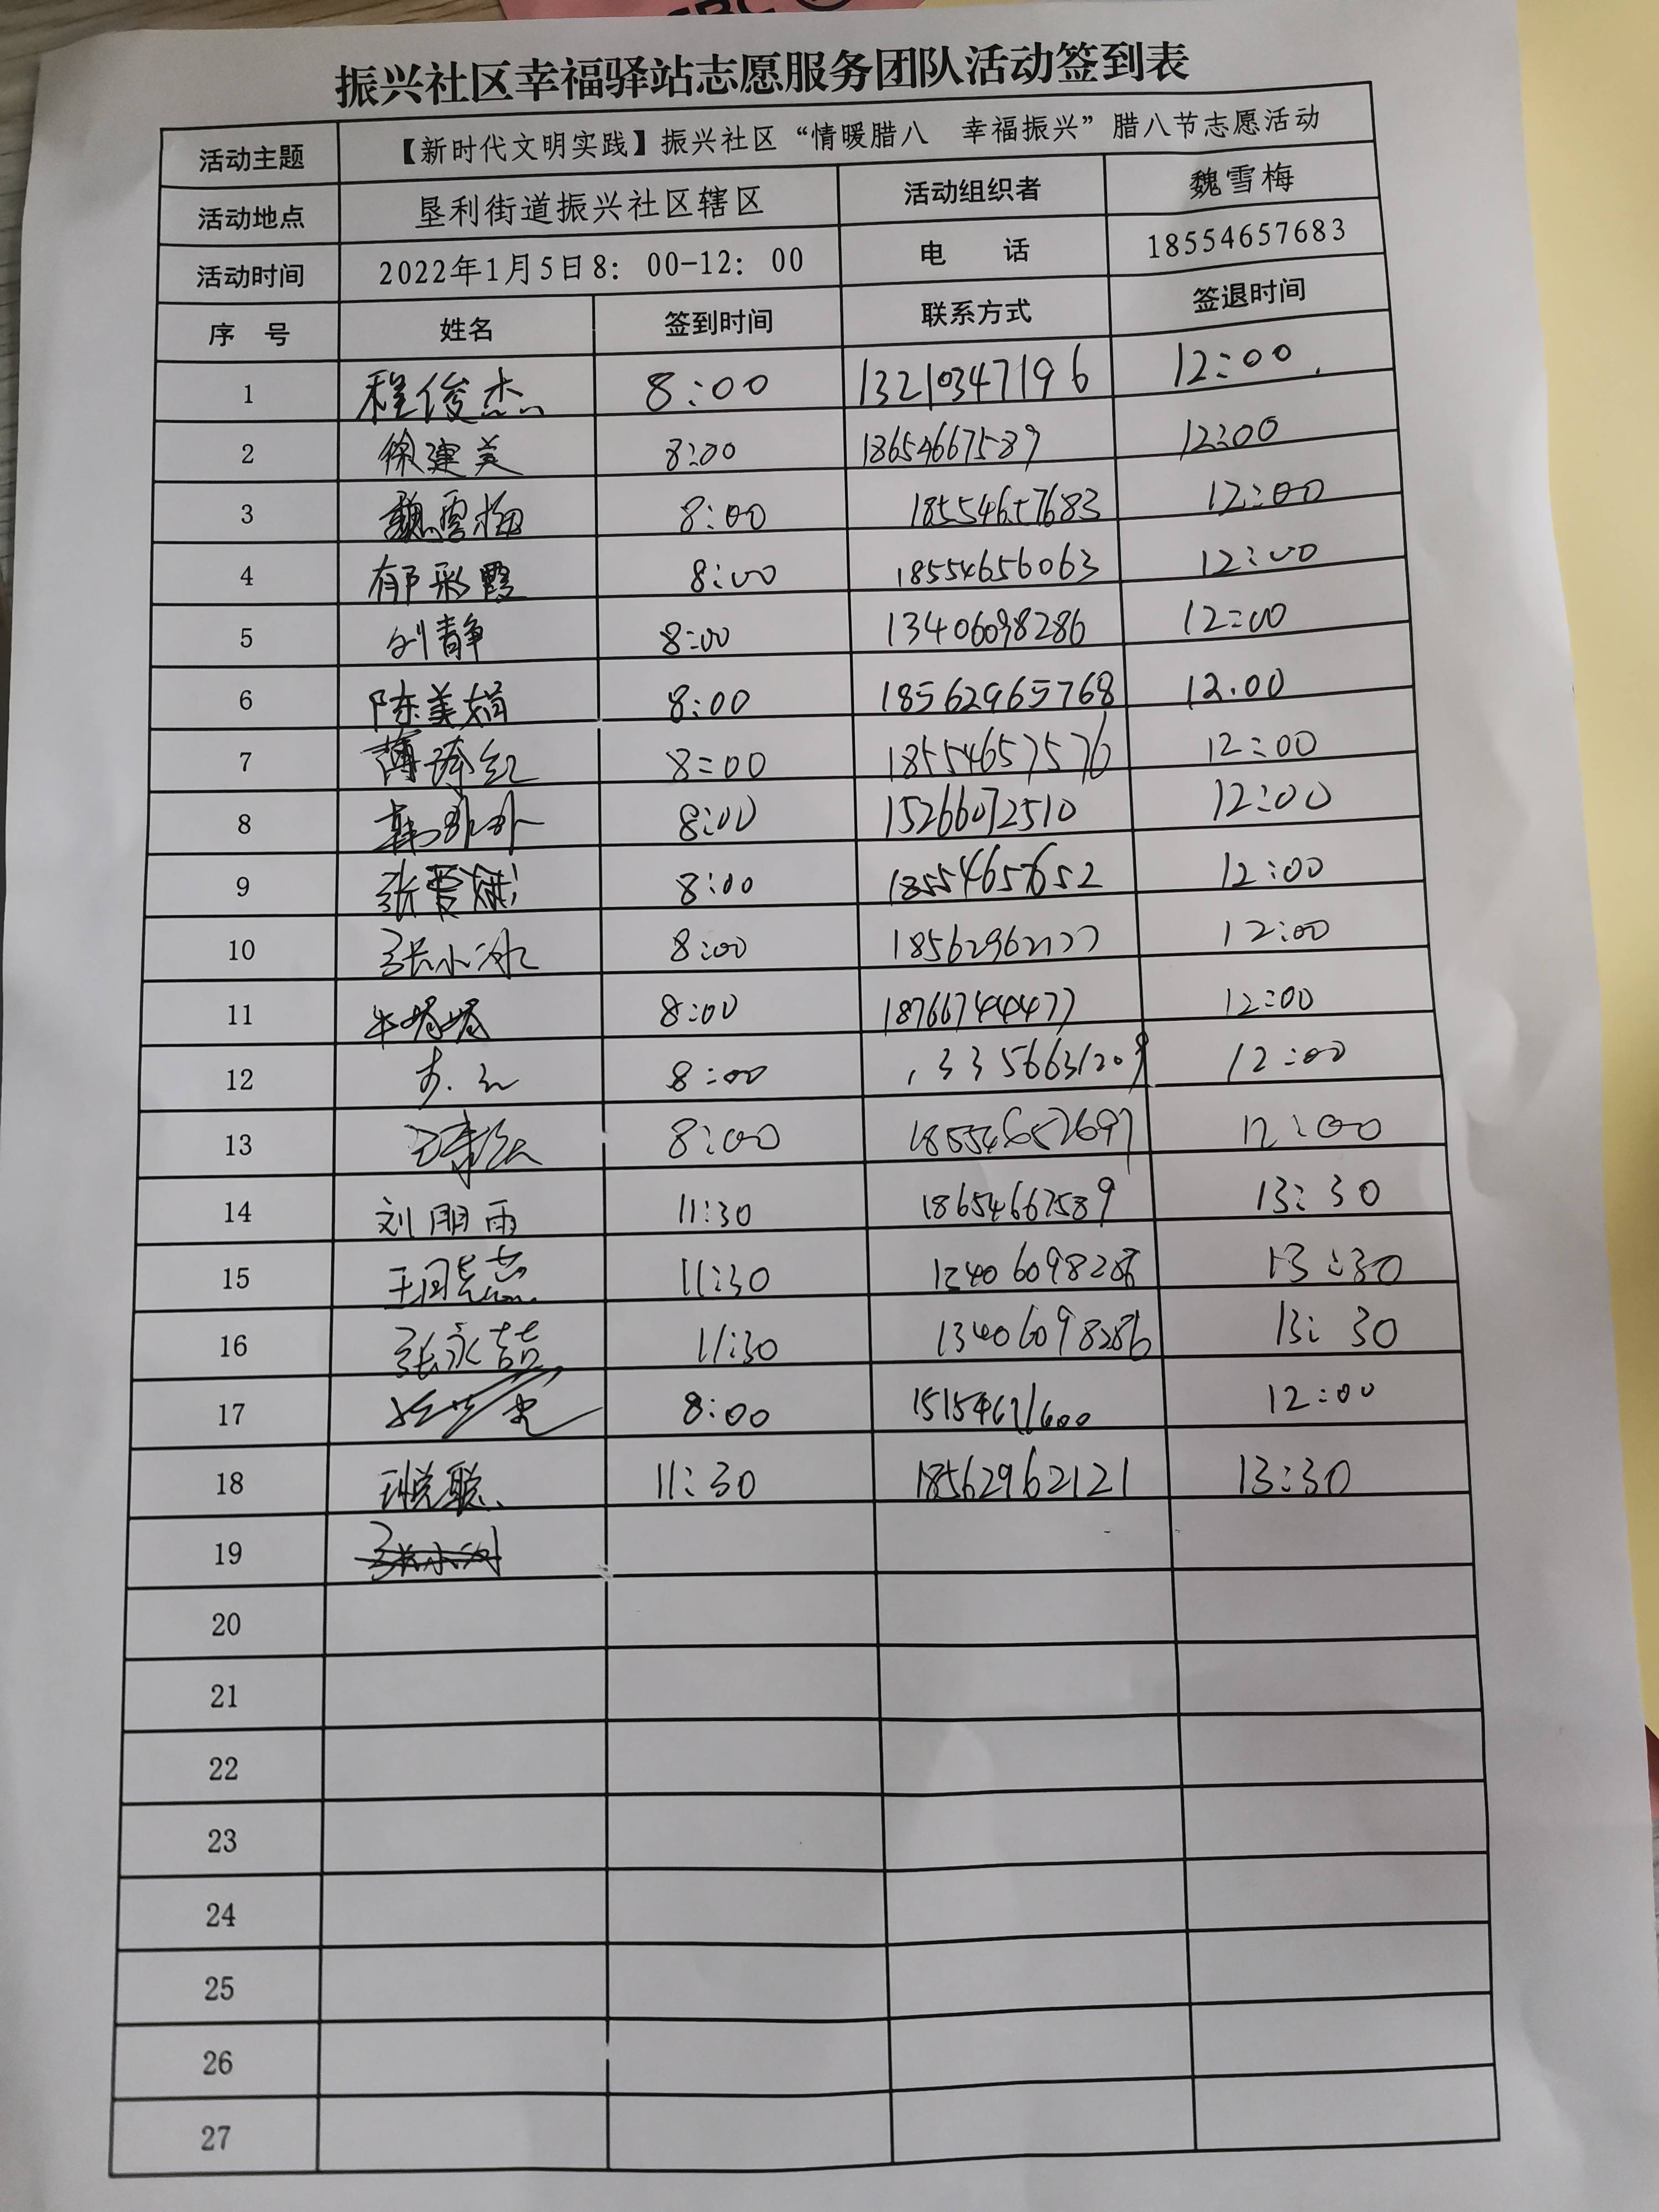 振兴社区幸福驿站志愿服务团队活动签到表
活动主题 【新时代文明实践】振兴社区“情暖腊八 幸福振兴”腊八节志愿活动
活动地点 垦利街道振兴社区辖区 活动组织者 魏雪梅
活动时间 2022年1月5日8：00-12：00 电 话 18554657683
序 号 姓名 签到时间 联系方式 签退时间
1 程俊杰 8:00 13210347196 12:00
2 徐建美 8:00 18654667589 12:00
3 魏雪梅 8:00 18554657683 12:00
4 郁彩霞 8:00 18554656063 12:00
5 刘静 8:00 13406098286 12:00
6 陈美娟 8:00 18562965768 12.00
7 薄琦红 8:00 18554657576 12:00
8 韩 8:00 15266072510 12:00
9 张 8:00 18554657652 12:00
10 张小冰 8:00 12:00
11 牛 8:00 18766744477 12:00
12 8:00 12:00
13 8:00 18554657697 12:00
14 刘朋雨 11:30 18654667589 13:30
15 11:30 13:30
16 张永喆 11:30 13406098286 13:30
17 8:00 12:00
18 11:30 18562962121 13:30
19
20
21
22
23
24
25
26
27